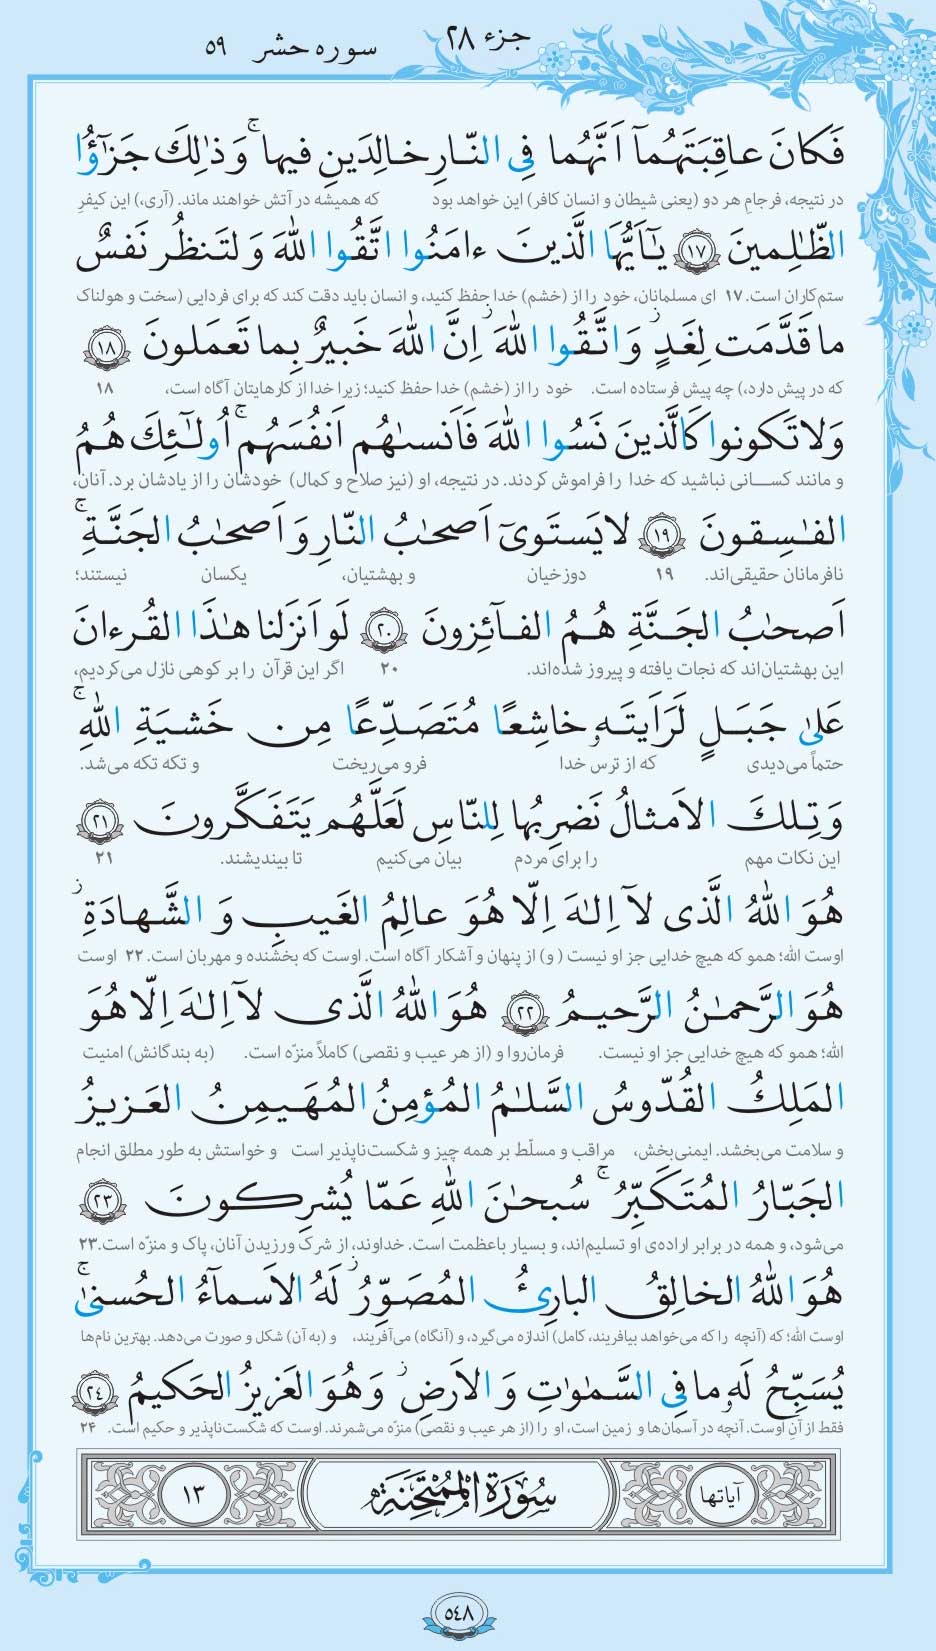 جزء ۲۸ سوره حشر ۵۹
فَكانَ عاقِبَتَهُمآ اَنَّهُما فِى النّارِ خالِدَينِ فيها ۚ وَ ذٰلِكَ جَزٰٓؤُا
در نتیجه، فرجامِ هر دو (یعنی شیطان و انسان کافر) این خواهد بود که همیشه در آتش خواهند ماند. (آری،) این کیفرِ
الظّٰلِمينَ ﴿١٧﴾ يٰٓاَيُّهَا الَّذينَ ءامَنُوا اتَّقُوا اللّٰهَ وَ لتَنظُر نَفسٌ
ستم‌کاران است. ۱۷ ای مسلمانان، خود را از (خشم) خدا حفظ کنید، و انسان باید دقت کند که برای فردایی (سخت و هولناک
ما قَدَّمَت لِغَدٍ ۖ وَ اتَّقُوا اللّٰهَ ۚ اِنَّ اللّٰهَ خَبيرٌ بِما تَعمَلونَ ﴿١٨﴾
که در پیش دارد،) چه پیش فرستاده است. خود را از (خشم) خدا حفظ کنید؛ زیرا خدا از کارهایتان آگاه است، ۱۸
وَلا تَكونوا كَالَّذينَ نَسُوا اللّٰهَ فَاَنسىٰهُم اَنفُسَهُم ۚ اُولٰٓئِكَ هُمُ
و مانند کسانی نباشید که خدا را فراموش کردند. در نتیجه، او (نیز صلاح و کمال) خودشان را از یادشان برد. آنان،
الفٰسِقونَ ﴿١٩﴾ لا يَستَوىٓ اَصحٰبُ النّارِ وَ اَصحٰبُ الجَنَّةِ ۚ
نافرمانان حقیقی‌اند. ۱۹ دوزخیان و بهشتیان، یکسان نیستند؛
اَصحٰبُ الجَنَّةِ هُمُ الفآئِزونَ ﴿٢٠﴾ لَو اَنزَلنا هٰذَا القُرءانَ
این بهشتیان‌اند که نجات یافته و پیروز شده‌اند. ۲۰ اگر این قرآن را بر کوهی نازل می‌کردیم،
عَلىٰ جَبَلٍ لَرَاَيتَهٗ خاشِعًا مُتَصَدِّعًا مِن خَشيَةِ اللّٰهِ ۚ
حتماً می‌دیدی که از ترس خدا فرو می‌ریخت و تکه تکه می‌شد.
وَ تِلكَ الاَمثالُ نَضرِبُها لِلنّاسِ لَعَلَّهُم يَتَفَكَّرونَ ﴿٢١﴾
این نکات مهم را برای مردم بیان می‌کنیم تا بیندیشند. ۲۱
هُوَ اللّٰهُ الَّذى لآ اِلٰهَ اِلّا هُوَ عالِمُ الغَيبِ وَ الشَّهادَةِ ۖ
اوست الله؛ همو که هیچ خدایی جز او نیست (و) از پنهان و آشکار آگاه است. اوست که بخشنده و مهربان است. ۲۲ اوست
هُوَ الرَّحمٰنُ الرَّحيمُ ﴿٢٢﴾ هُوَ اللّٰهُ الَّذى لآ اِلٰهَ اِلّا هُوَ
الله؛ همو که هیچ خدایی جز او نیست. فرمان‌روا و (از هر عیب و نقصی) کاملاً منزّه است. (به بندگانش) امنیت
المَلِكُ القُدّوسُ السَّلٰمُ المُؤمِنُ المُهَيمِنُ العَزيزُ
و سلامت می‌بخشد. ایمنی‌بخش، مراقب و مسلّط بر همه چیز و شکست‌ناپذیر است و خواستش به طور مطلق انجام
الجَبّارُ المُتَكَبِّرُ ۚ سُبحٰنَ اللّٰهِ عَمّا يُشرِكونَ ﴿٢٣﴾
می‌شود، و همه در برابر اراده‌ی او تسلیم‌اند، و بسیار باعظمت است. خداوند، از شرک ورزیدن آنان، پاک و منزّه است. ۲۳
هُوَ اللّٰهُ الخالِقُ البارِئُ المُصَوِّرُ ۖ لَهُ الاَسمآءُ الحُسنىٰ ۚ
اوست الله؛ که (آنچه را که می‌خواهد بیافریند، کامل) اندازه می‌گیرد، و (آنگاه) می‌آفریند، و (به آن) شکل و صورت می‌دهد. بهترین نام‌ها
يُسَبِّحُ لَهٗ ما فِى السَّمٰوٰتِ وَ الاَرضِ ۖ وَ هُوَ العَزيزُ الحَكيمُ ﴿٢٤﴾
فقط از آنِ اوست. آنچه در آسمان‌ها و زمین است، او را (از هر عیب و نقصی) منزّه می‌شمرند. اوست که شکست‌ناپذیر و حکیم است. ۲۴
آياتها سُورَةُ المُمتَحِنَة ١٣
٥٤٨